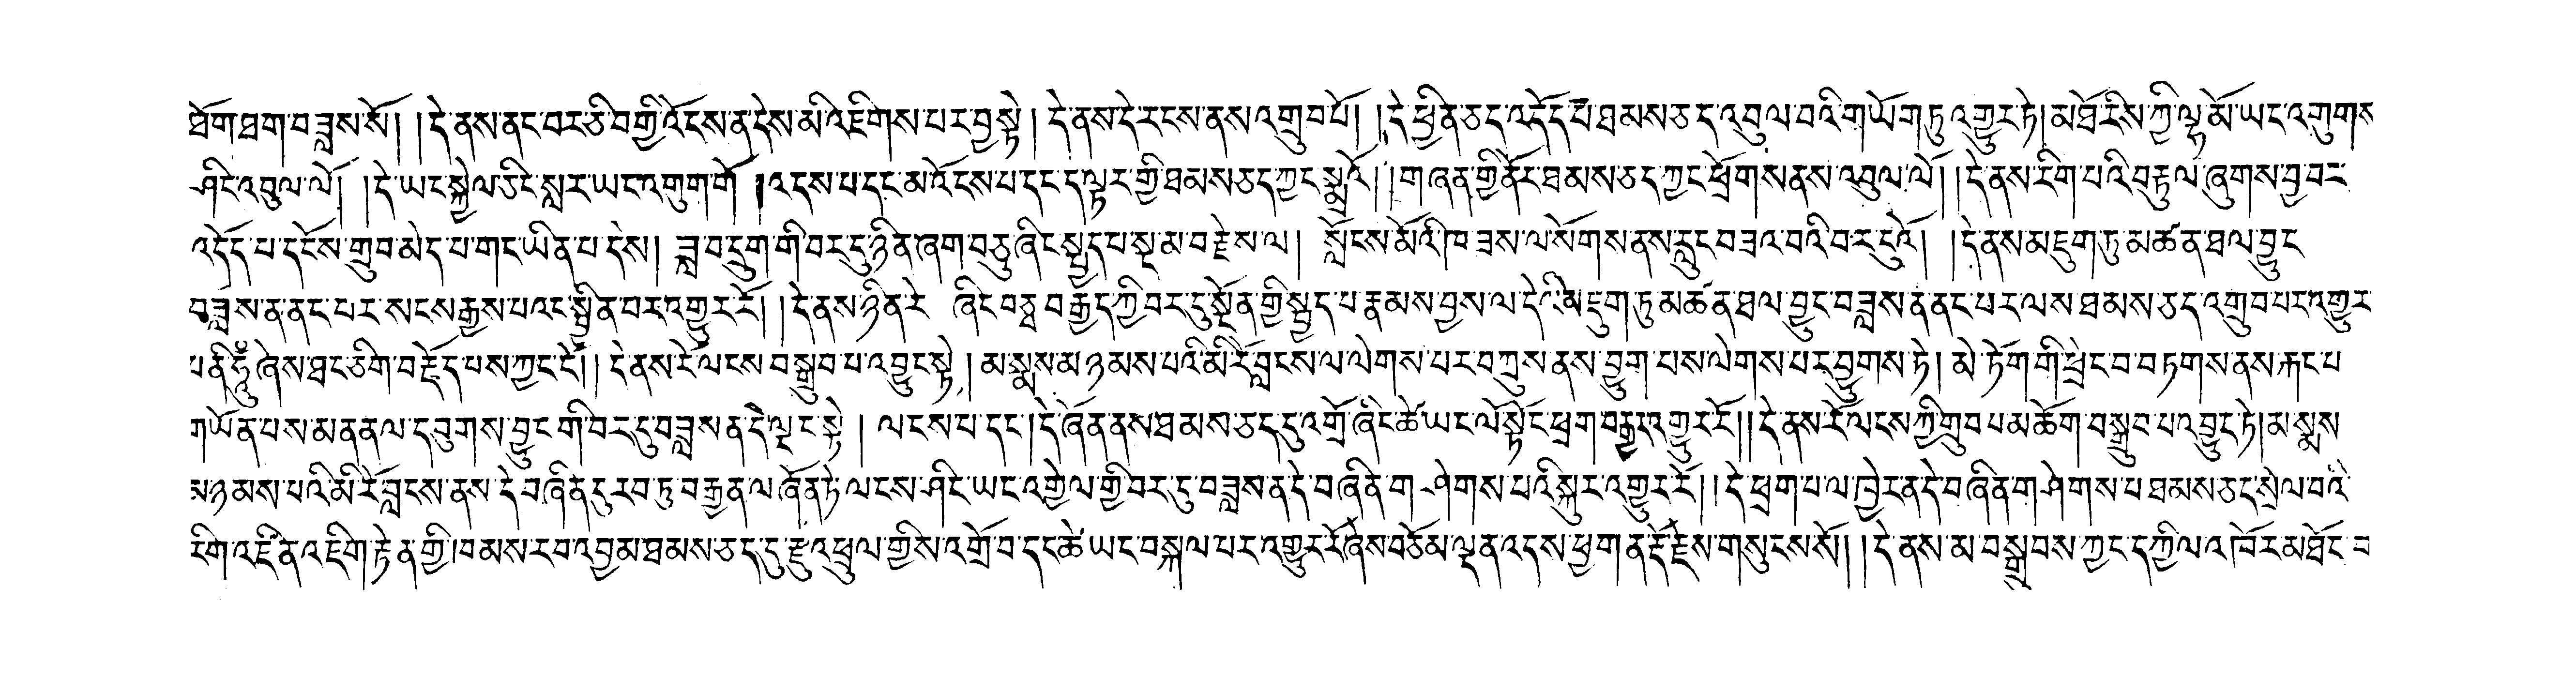 ཐོག་ཐག་བཟླས་སོ། །དེ་ནས་ནང་བར་ཅི་བགྱི་འོངས་ན་དེས་མི་འཇིགས་པར་བྱ་སྟེ། དེ་ནས་དེ་རངས་ནས་འགྲུབ་པོ། །དེ་ཕྱིན་ཅད་འདོད་པ་ཐམས་ཅད་འབུལ་བའི་གཡོག་ཏུ་འགྱུར་ཏེ། མཐོ་རིས་ཀྱི་ལྷ་མོ་ཡང་འགུགས་
ཤིང་འབུལ་ལོ། །དེ་ཡང་སྐྱེལ་ཅིང་སླར་ཡང་འགུག་གོ །འདས་པ་དང་མ་འོངས་པ་དང་ད་ལྟར་གྱི་ཐམས་ཅད་ཀྱང་སྨྲའོ། །གཞན་གྱི་ནོར་ཐམས་ཅད་ཀྱང་ཕྲོགས་ནས་འབུལ་ལོ། །དེ་ནས་རིག་པའི་བརྟུལ་ཞུགས་བྱ་བར་
འདོད་པ་དངོས་གྲུབ་མེད་པ་གང་ཡིན་པ་དེས། ཟླ་བ་དྲུག་གི་བར་དུ་ཉིན་ཞག་བཅུ་ཞིང་སྤྱད་པ་སྔ་མ་བརྗེས་ལ། སློངས་མོའི་ཁ་ཟས་ལ་སོགས་ནས་རླུང་བཟའ་བའི་བར་དུའོ། །དེ་ནས་མདུག་ཏུ་མཚན་ཐལ་བྱུང་
བཟླས་ན་ནང་པར་སངས་རྒྱས་པའང་སྦྱིན་བར་འགྱུར་རོ། །དེ་ནས་ཉིན་རེ་ ཞིང་བཅྭ་བརྒྱད་ཀྱི་བར་དུ་སྔོན་གྱི་སྤྱད་པ་རྣམས་བྱས་ལ་དེའི་མདུག་ཏུ་མཚན་ཐལ་བྱུང་བཟླས་ན་ནང་པར་ལས་ཐམས་ཅད་འགྲུབ་པར་འགྱུར་
པ་ནི་ཧཱུྃ་ཞེས་ཐང་ཅིག་བརྗོད་པས་ཀྱང་ངོ། །དེ་ནས་རོ་ལངས་བསྒྲུབ་པ་འབྱུང་སྟེ། མ་སྨས་མ་ཉམས་པའི་མི་རོ་བླངས་ལ་ལེགས་པར་བཀྲུས་ནས་བྱུག་པས་ལེགས་པར་བྱུགས་ཏེ། མེ་ཏོག་གི་ཕྲེང་བ་བཏགས་ནས་རྐང་པ་
གཡོན་པས་མནན་ལ་དབུགས་བྱུང་གི་བར་དུ་བཟླས་ན་དེ་ལྡང་སྟེ། ལངས་པ་དང་།དེ་ཞོན་ནས་ཐམས་ཅད་དུ་འགྲོ་ཞིང་ཚེ་ཡང་ལོ་སྟོང་ཕྲག་བརྒྱར་འགྱུར་རོ།།དེ་ནས་རོ་ལངས་ཀྱི་གྲུབ་པ་མཆོག་བསྒྲུབ་པ་འབྱུང་ཏེ།མ་སྨས་
མ་ཉམས་པའི་མི་རོ་བླངས་ནས་དེ་བཞིན་དུ་རབ་ཏུ་བརྒྱན་ལ་ཞོན་ཏེ་ལངས་ཤིང་ཡང་འགྱེལ་གྱི་བར་དུ་བཟླས་ན་དེ་བཞིན་གཤེགས་པའི་སྐུར་འགྱུར་རོ།།དེ་ཕྲག་པ་ལ་ཁྱེར་ན་དེ་བཞིན་གཤེགས་པ་ཐམས་ཅད་སྲེལ་བའི་
རིག་འཛིན་འཇིག་རྟེན་གྱི་ཁམས་རབ་འབྱམ་ཐམས་ཅད་དུ་རྫུ་འཕྲུལ་གྱིས་འགྲོ་བ་དང་ཚེ་ཡང་བསྐལ་པར་འགྱུར་རོ་ཞེས་བཅོམ་ལྡན་འདས་ཕྱག་ན་རྡོ་རྗེས་གསུངས་སོ། །དེ་ནས་མ་བསྒྲུབས་ཀྱང་དཀྱིལ་འཁོར་མཐོང་བ་